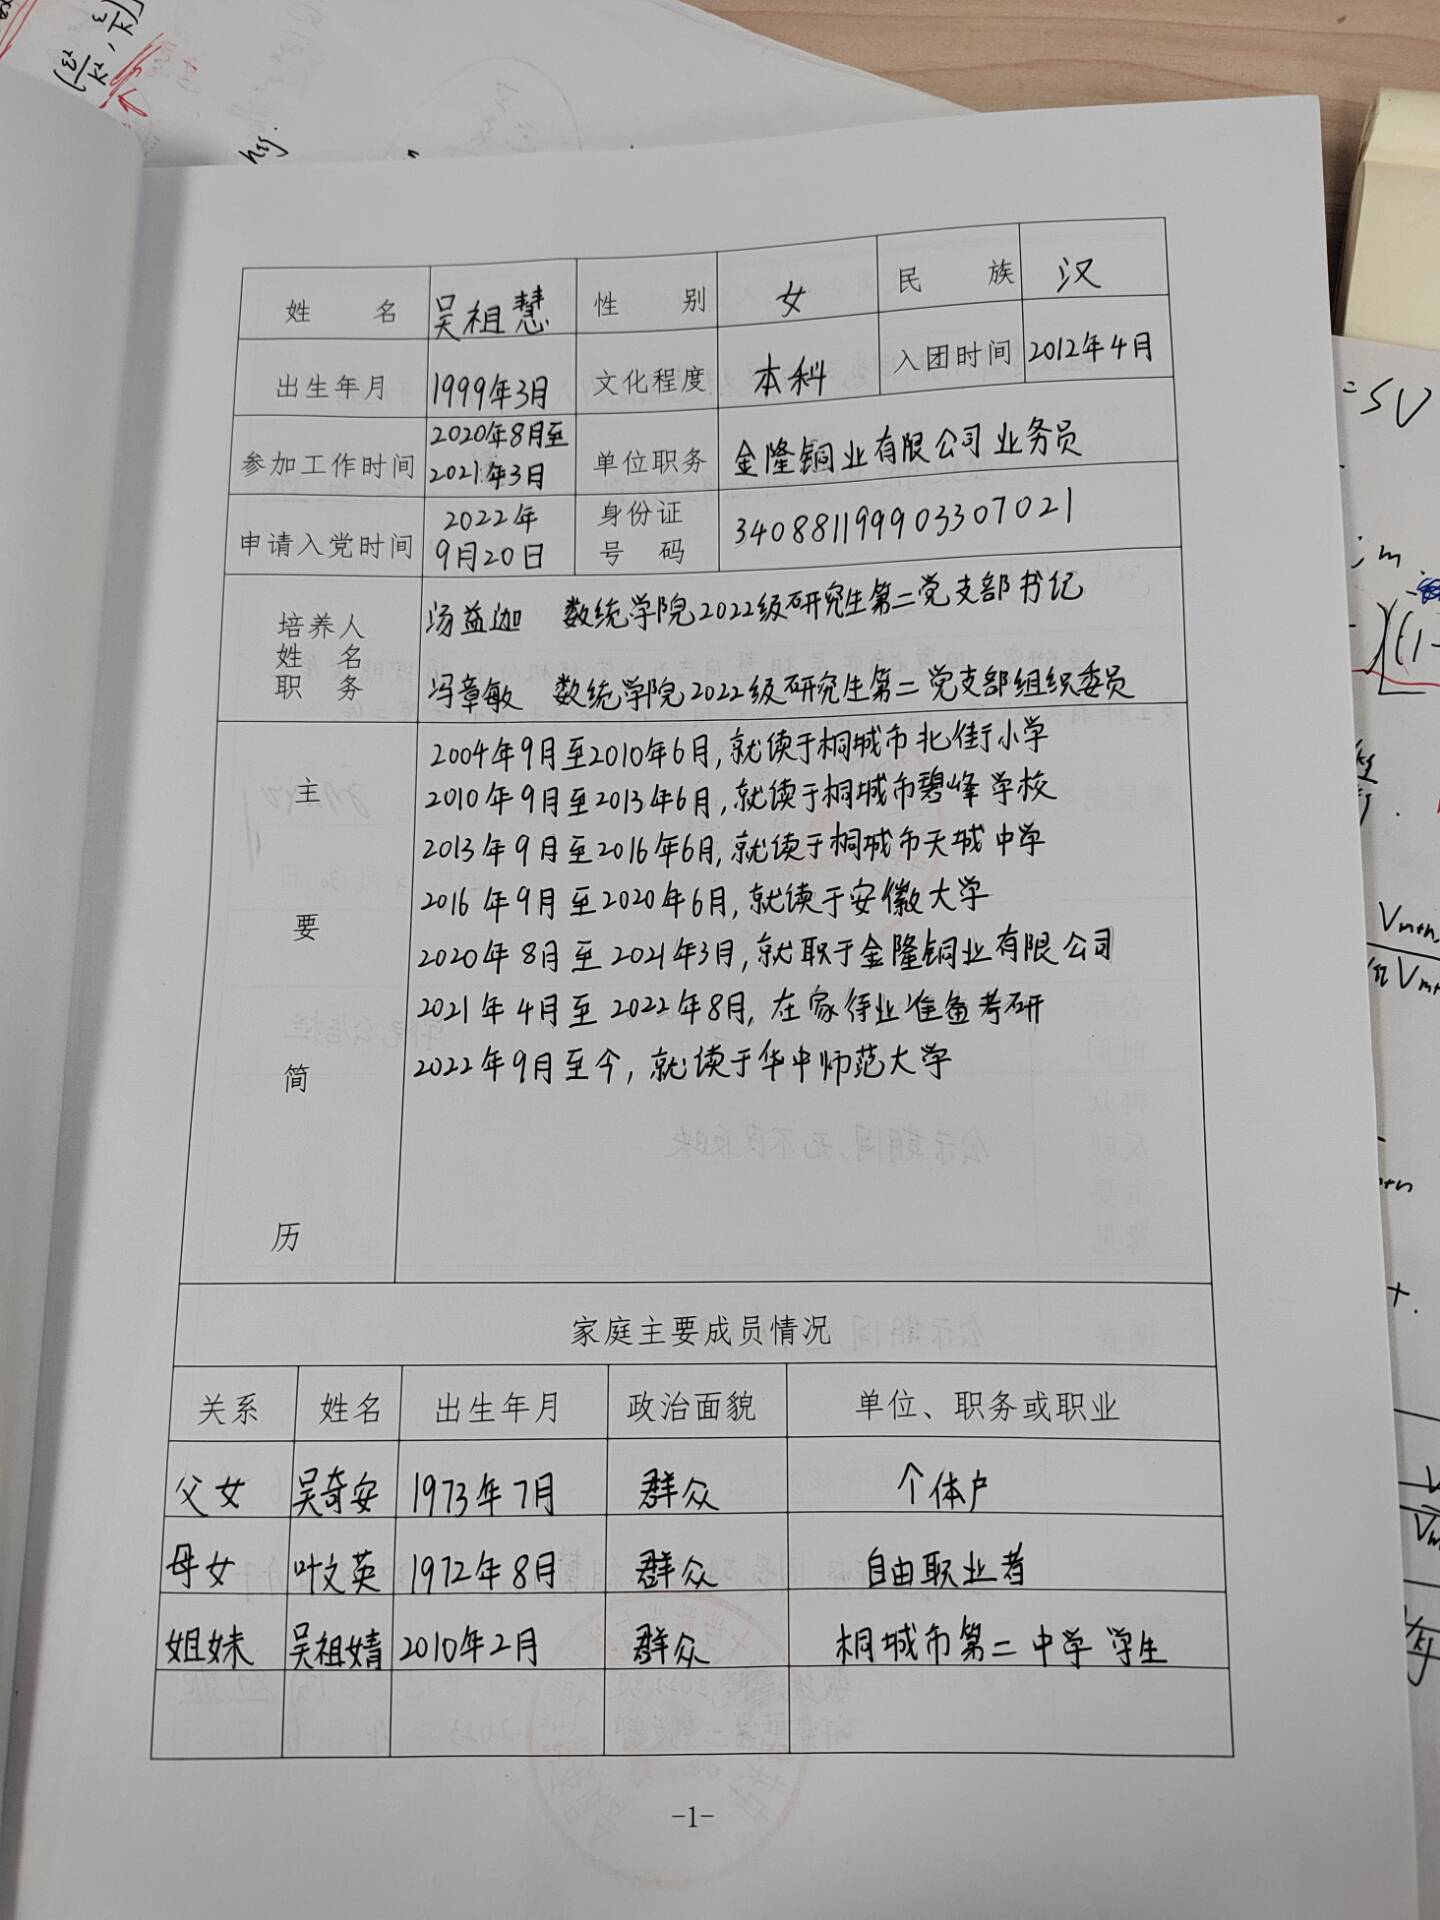 姓 名 吴祖慧 性 别 女 民 族 汉
出生年月 1999年3月 文化程度 本科 入团时间 2012年4月
参加工作时间 2020年8月至 2021年3月 单位职务 金隆铜业有限公司业务员
申请入党时间 2022年 9月20日 身份证 号 码 340881199903307021
培养人 姓 名 职 务
汤益迦 数统学院2022级研究生第二党支部书记
冯章敏 数统学院2022级研究生第二党支部组织委员
主 要 简 历
2004年9月至2010年6月,就读于桐城市北街小学
2010年9月至2013年6月,就读于桐城市碧峰学校
2013年9月至2016年6月,就读于桐城市天城中学
2016年9月至2020年6月,就读于安徽大学
2020年8月至2021年3月,就职于金隆铜业有限公司
2021年4月至2022年8月,在家待业准备考研
2022年9月至今,就读于华中师范大学
家庭主要成员情况
关系 姓名 出生年月 政治面貌 单位、职务或职业
父女 吴奇安 1973年7月 群众 个体户
母女 叶文英 1972年8月 群众 自由职业者
姐妹 吴祖婧 2010年2月 群众 桐城市第二中学 学生
-1-